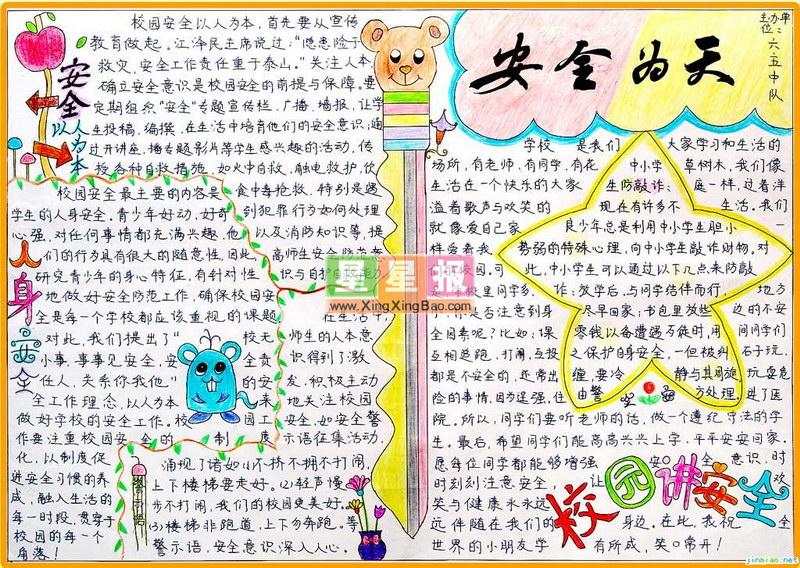 安全以人为本
校园安全以人为本，首先要从宣传
教育做起，江泽民主席说过："隐患险于
救灾，安全工作责任重于泰山。"关注人本
确立安全意识是校园安全的前提与保障。要
定期组织"安全"专题宣传栏，广播，墙报，让学
生投稿，编撰，在生活中培育他们的安全意识，通
过开讲座，播专题影片等学生感兴趣的活动，传
授各种自救措施，如火中自救，触电救护，饮
食中毒抢救，特别是遇
到犯罪行为如何处理
以及消防知识等，提
高师生安全防范意
识与自护自救能力
在生活中，
师生的人本意
识得到了激
发，积极主动
地关注校园
安全，如安全警
示语征集活动，
人身安全
校园安全最主要的内容是
学生的人身安全，青少年好动，好奇
心强，对任何事情都充满兴趣，他
们的行为具有很大的随意性，因此，
研究青少年的身心特征，有针对性
地做好安全防范工作，确保校园安
全是每一个学校都应该重视的课题
对此，我们提出了"校无
小事，事事见安全，安全责
任人，关系你我他"的安
全工作理念，以人为本来
做好学校的安全工作。校园工
作要注重校园安全的制度
化，以制度促
进安全习惯的养
成，融入生活的
每一时段，贯穿于
校园的每一个
角落！
警示语
涌现了诸如(1)不挤不拥不打闹，
上下楼梯要走好。(2)轻声慢
步不打闹，我们的校园更美好。
(3)楼梯非跑道，上下勿奔跑。等
警示语，安全意识深入人心。
安全为天
主办单位：六·五中队
学校是我们大家学习和生活的
场所，有老师，有同学，有花草树木，我们像
生活在一个快乐的大家庭一样，过着洋
溢着歌声与欢笑的生活，我们
就像爱自己家一
样爱着我
们的校园。可
校园里同学多，地方
小，你是否注意到身边的不安
全因素呢？比如：课间同学们
互相追跑，打闹，互投石子玩，
都是不安全的，还常出玩耍危
险的事情，因为逞强，住进了医
院。所以，同学们要听老师的话，做一个遵纪守法的学
生，最后，希望同学们能高高兴兴上学，平平安安回家。
愿每位同学都能够增强安全意识，时
时刻刻注意安全，让欢
笑与健康永远永
远伴随在我们的身边，在此，我祝全
世界的小朋友学有所成，笑口常开！
中小学
生防敲诈：
现在有许多不
良少年总是利用中小学生胆小
势弱的特殊心理，向中小学生敲诈财物。对
此，中小学生可以通过以下几点来防敲
诈：放学后，与同学结伴而行，
尽早回家；书包里放些
零钱以备遭遇歹徒时，用
之保护自身安全，一但被纠
缠，要冷静与其周旋
由警方处理。
校园讲安全
星星报
www.XingXingBao.com
jinmiao.net